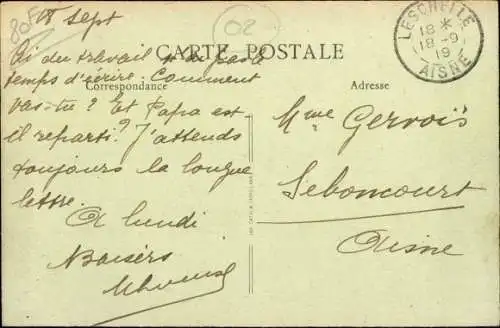 18 Sept
02
CARTE POSTALE
Correspondance
Adresse
LESCHELLE
18 *
18 - 9
19
AISNE
Ai du travail pas le
temps d'écrire. Comment
vas-tu ? Et Papa est-
il reparti ? J'attends
toujours la longue
lettre.
A lundi
Baisers
Mme Gervois
Seboncourt
Aisne